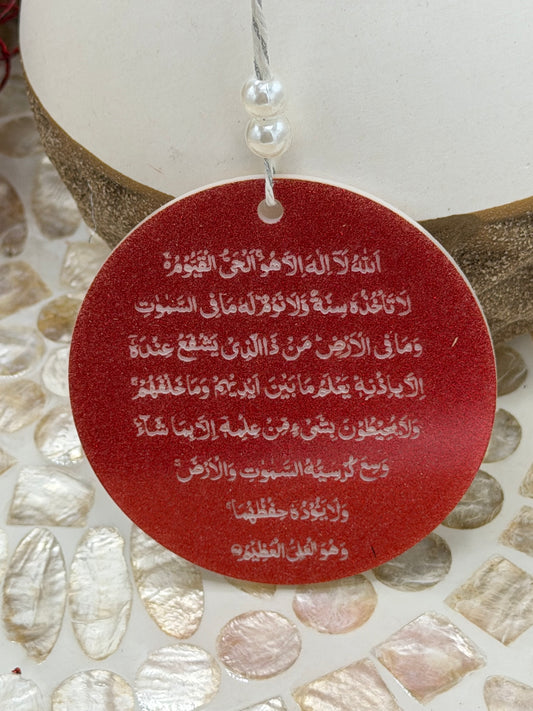 اَللّٰهُ لَآ اِلٰهَ اِلَّا هُوَۚ اَلْحَىُّ الْقَيُّوْمُ ەۚ
لَا تَاْخُذُهٗ سِنَةٌ وَّلَا نَوْمٌؕ لَهٗ مَا فِى السَّمٰوٰتِ
وَمَا فِى الْاَرْضِؕ مَنْ ذَا الَّذِىْ يَشْفَعُ عِنْدَهٗۤ
اِلَّا بِاِذْنِهٖؕ يَعْلَمُ مَا بَيْنَ اَيْدِيْهِمْ وَمَا خَلْفَهُمْۚ
وَلَا يُحِيْطُوْنَ بِشَىْءٍ مِّنْ عِلْمِهٖۤ اِلَّا بِمَا شَآءَۚ
وَسِعَ كُرْسِيُّهُ السَّمٰوٰتِ وَالْاَرْضَۚ
وَلَا يَئُوْدُهٗ حِفْظُهُمَاۚ
وَهُوَ الْعَلِىُّ الْعَظِيْمُ